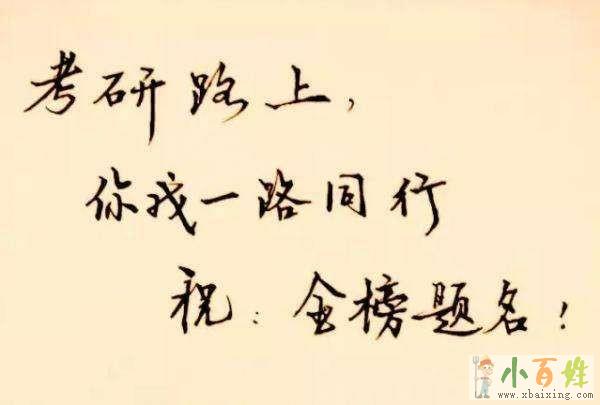 考研路上，
你我一路同行
祝：金榜题名！
小百姓
www.xbaixing.com